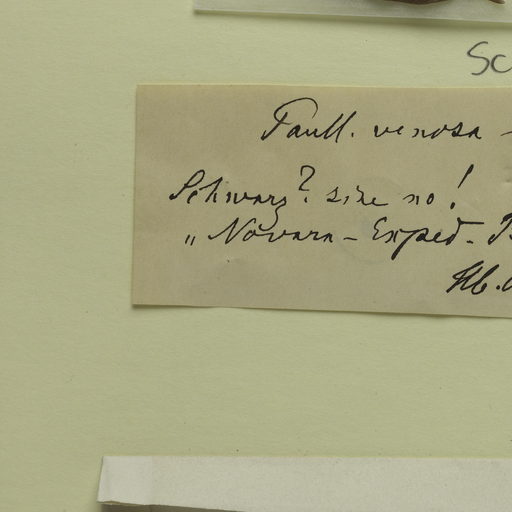 Sc
Paull. venosa -
Schwarz? sine no!
„ Novara - Exped. -
Hb.